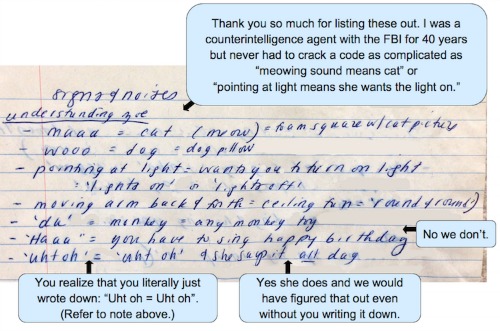 Thank you so much for listing these out. I was a
counterintelligence agent with the FBI for 40 years
but never had to crack a code as complicated as
"meowing sound means cat" or
"pointing at light means she wants the light on."
signs & noises
understanding zoe
- maaa = cat (meow) = foam square w/ cat picture
- wooo = dog = dog pillow
- pointing at light = wants you to turn on light
= 'lights on' or 'lights off'
- moving arm back & forth = ceiling fan = 'round & round')
- 'da' = monkey = any monkey toy
- "Haaa" = you have to sing happy birthday
No we don't.
- 'uht oh' = 'uht oh' & she says it all day
You realize that you literally just
wrote down: "Uht oh = Uht oh".
(Refer to note above.)
Yes she does and we would
have figured that out even
without you writing it down.